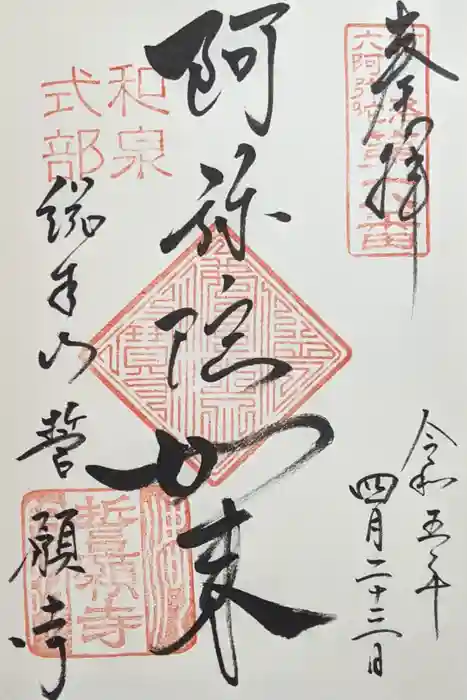 奉拝
六阿弥陀
令和五年
四月二十三日
阿弥陀如来
和泉
式部
総本山 誓願寺
誓願寺